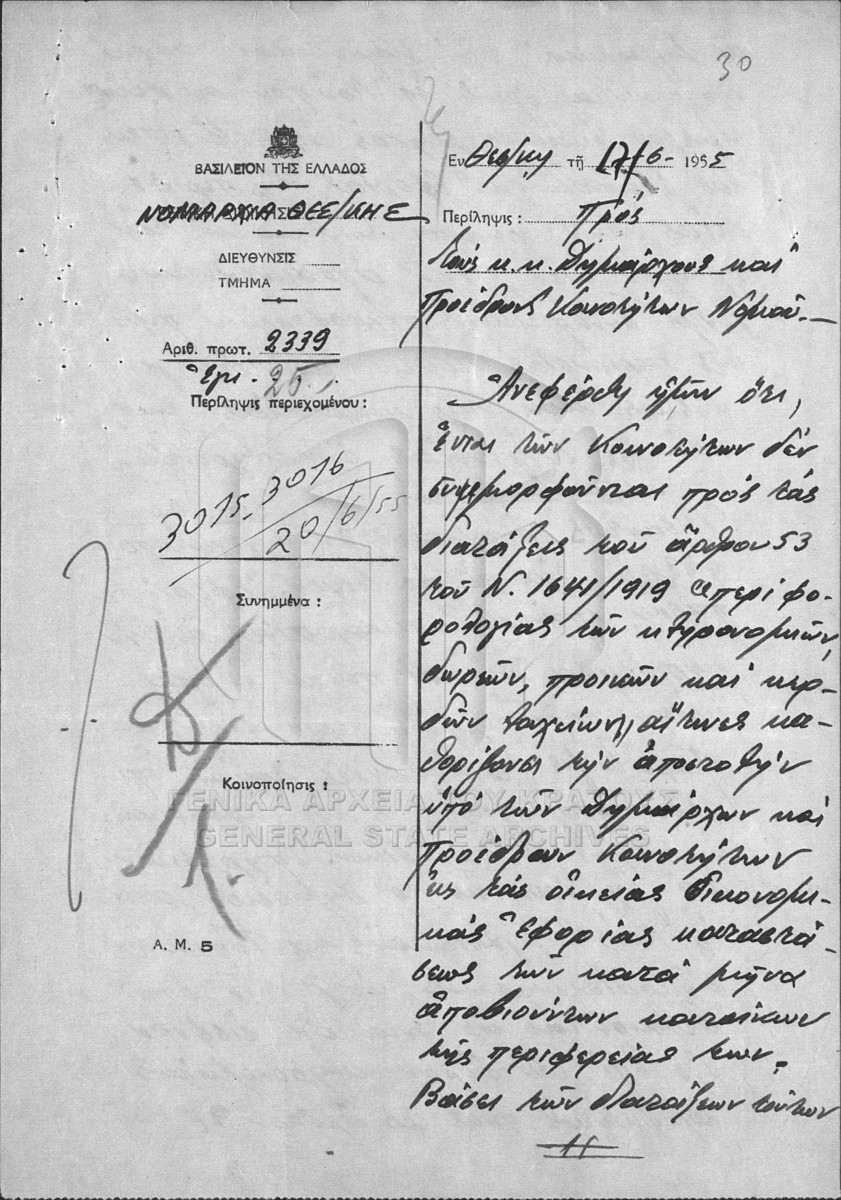 30
ΒΑΣΙΛΕΙΟΝ ΤΗΣ ΕΛΛΑΔΟΣ
ΝΟΜΑΡΧΙΑ ΘΕΣ/ΚΗΣ
ΔΙΕΥΘΥΝΣΙΣ
ΤΜΗΜΑ
Αριθ. πρωτ. 2339
Ἐγκ. 25
Περίληψις περιεχομένου :
3015, 3016
20/6/55
Συνημμένα :
Κοινοποίησις :
Α. Μ. 5
Ἐν Θεσ/κη τῇ 17/6 1955
Περίληψις : Πρός
τούς κ.κ. Δημάρχους καί
Προέδρους Κοινοτήτων Νομοῦ.
Ἀνεφέρθη ἡμῖν ὅτι,
ἔνιαι τῶν Κοινοτήτων δέν
συμμορφοῦνται πρός τάς
διατάξεις τοῦ ἄρθρου 53
τοῦ Ν. 1641/1919 "περί φο-
ρολογίας τῶν κληρονομιῶν,
δωρεῶν, προικῶν καί κερ-
δῶν λαχείων" αἵτινες κα-
θορίζουσι τήν ἀποστολήν
ὑπό τῶν Δημάρχων καί
Προέδρων Κοινοτήτων
εἰς τάς οἰκείας Οἰκονομι-
κάς Ἐφορίας καταστά-
σεως τῶν κατά μῆνα
ἀποβιούντων κατοίκων
τῆς περιφερείας των.
Βάσει τῶν διατάξεων τούτων
ΓΕΝΙΚΑ ΑΡΧΕΙΑ ΤΟΥ ΚΡΑΤΟΥΣ
GENERAL STATE ARCHIVES